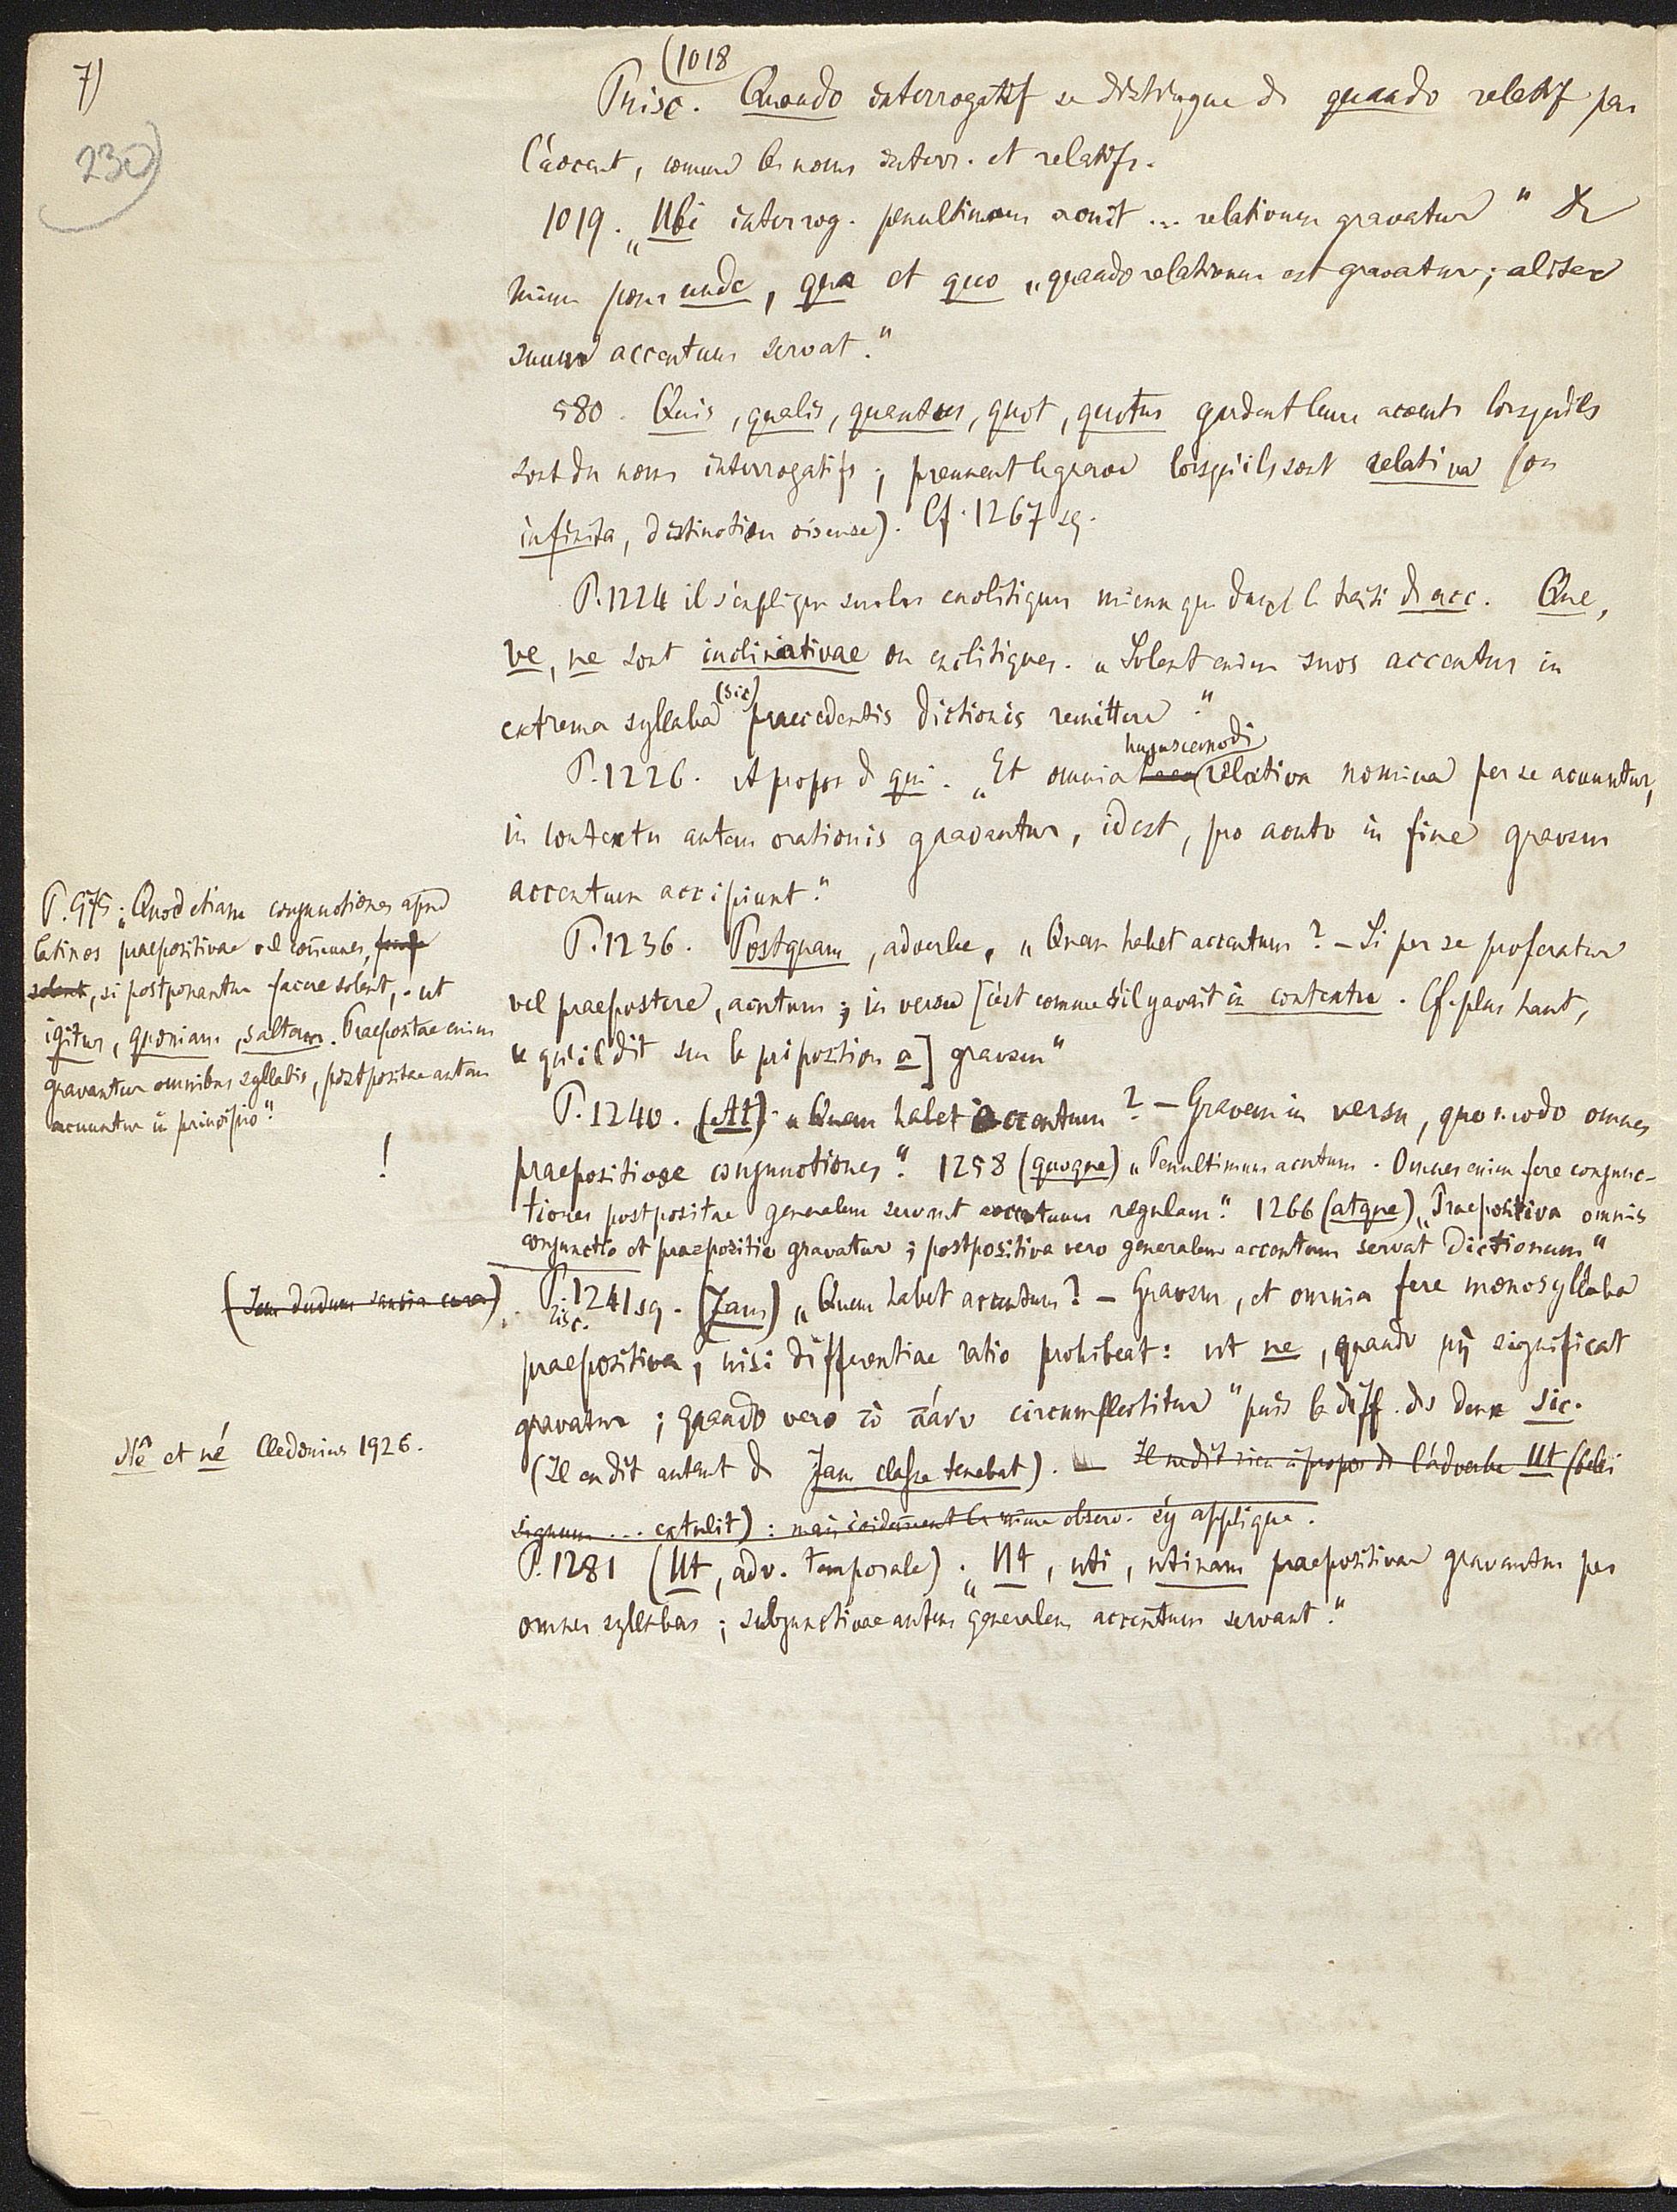 7)
230)
(1018
Prisc. Quando interrogatif se distingue de quando relatif par
l'accent, comme les noms interr. et relatifs.
1019. „Ubi interrog. penultimam acuit ... relativum gravatur" De
même pour unde, qua et quo „quando relativum est gravatur; aliter
suum accentum servat."
580. Quis, qualis, quantus, quot, quotus gardent leurs accents lorsqu'ils
sont des noms interrogatifs; prennent le grave lorsqu'ils sont relativa (ou
infinita, distinction oiseuse). Cf. 1267 sq.
P. 1224 il s'explique sur les enclitiques mieux que dans le traité de acc. Que,
ve, ne sont inclinativae ou enclitiques. „Solent enim suos accentus in
extrema syllaba (sic) praecedentis dictionis remittere."
P. 1226. A propos de qui. „Et omnia haec huiuscemodi relativa nomina per se acuuntur,
in contextu autem orationis gravantur, id est, pro acuto in fine gravem
accentum accipiunt."
P. 975: „Quod etiam conjunctiones apud
latinos praepositivae vel communes,
solent, si postponantur facere solent, ut
igitur, quoniam, saltem. Praepositae enim
gravantur omnibus syllabis, postpositae autem
acuuntur in principio."
!
P. 1236. Postquam, adverbe, „Quem habet accentum? – Si per se proferatur
vel praepostere, acutum; in versu [c'est comme s'il y avait in contextu. Cf. plus haut,
ce qu'il dit sur la préposition a] gravem"
P. 1240. (At). „Quem habet accentum? – Gravem in versu, quomodo omnes
praepositivae conjunctiones". 1258 (quoque) „Penultimum acutum. Omnes enim fere conjunc-
tiones postpositae generalem servant accentuum regulam." 1266 (atque) „Praepositiva omnis
conjunctio et praepositio gravatur; postpositiva vero generalem accentum servat dictionum"
(Jam dudum saucia cura).
Prisc. 1241 sq. (Jam) „Quem habet accentum? – Gravem, et omnia fere monosyllaba
praepositiva, nisi differentiae ratio prohibeat: ut ne, quando μὴ significat
gravatur; quando vero τὸ πάνυ circumflectitur" puis la diff. des deux sic.
Nê et né Cledonius 1926.
(Il en dit autant de Jam classe tenebat). – Il ne dit rien à propos de l'adverbe Ut (belli
signum ... extulit): mais évidemment la même observ. s'y applique.
P. 1281 (Ut, adv. temporale). „Ut, uti, utinam praepositivae gravantur per
omnes syllabas; subjunctivae autem generalem accentum servant."